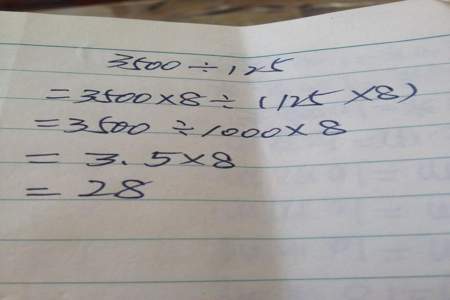 3500÷125
=3500×8÷(125×8)
=3500÷1000×8
=3.5×8
=28